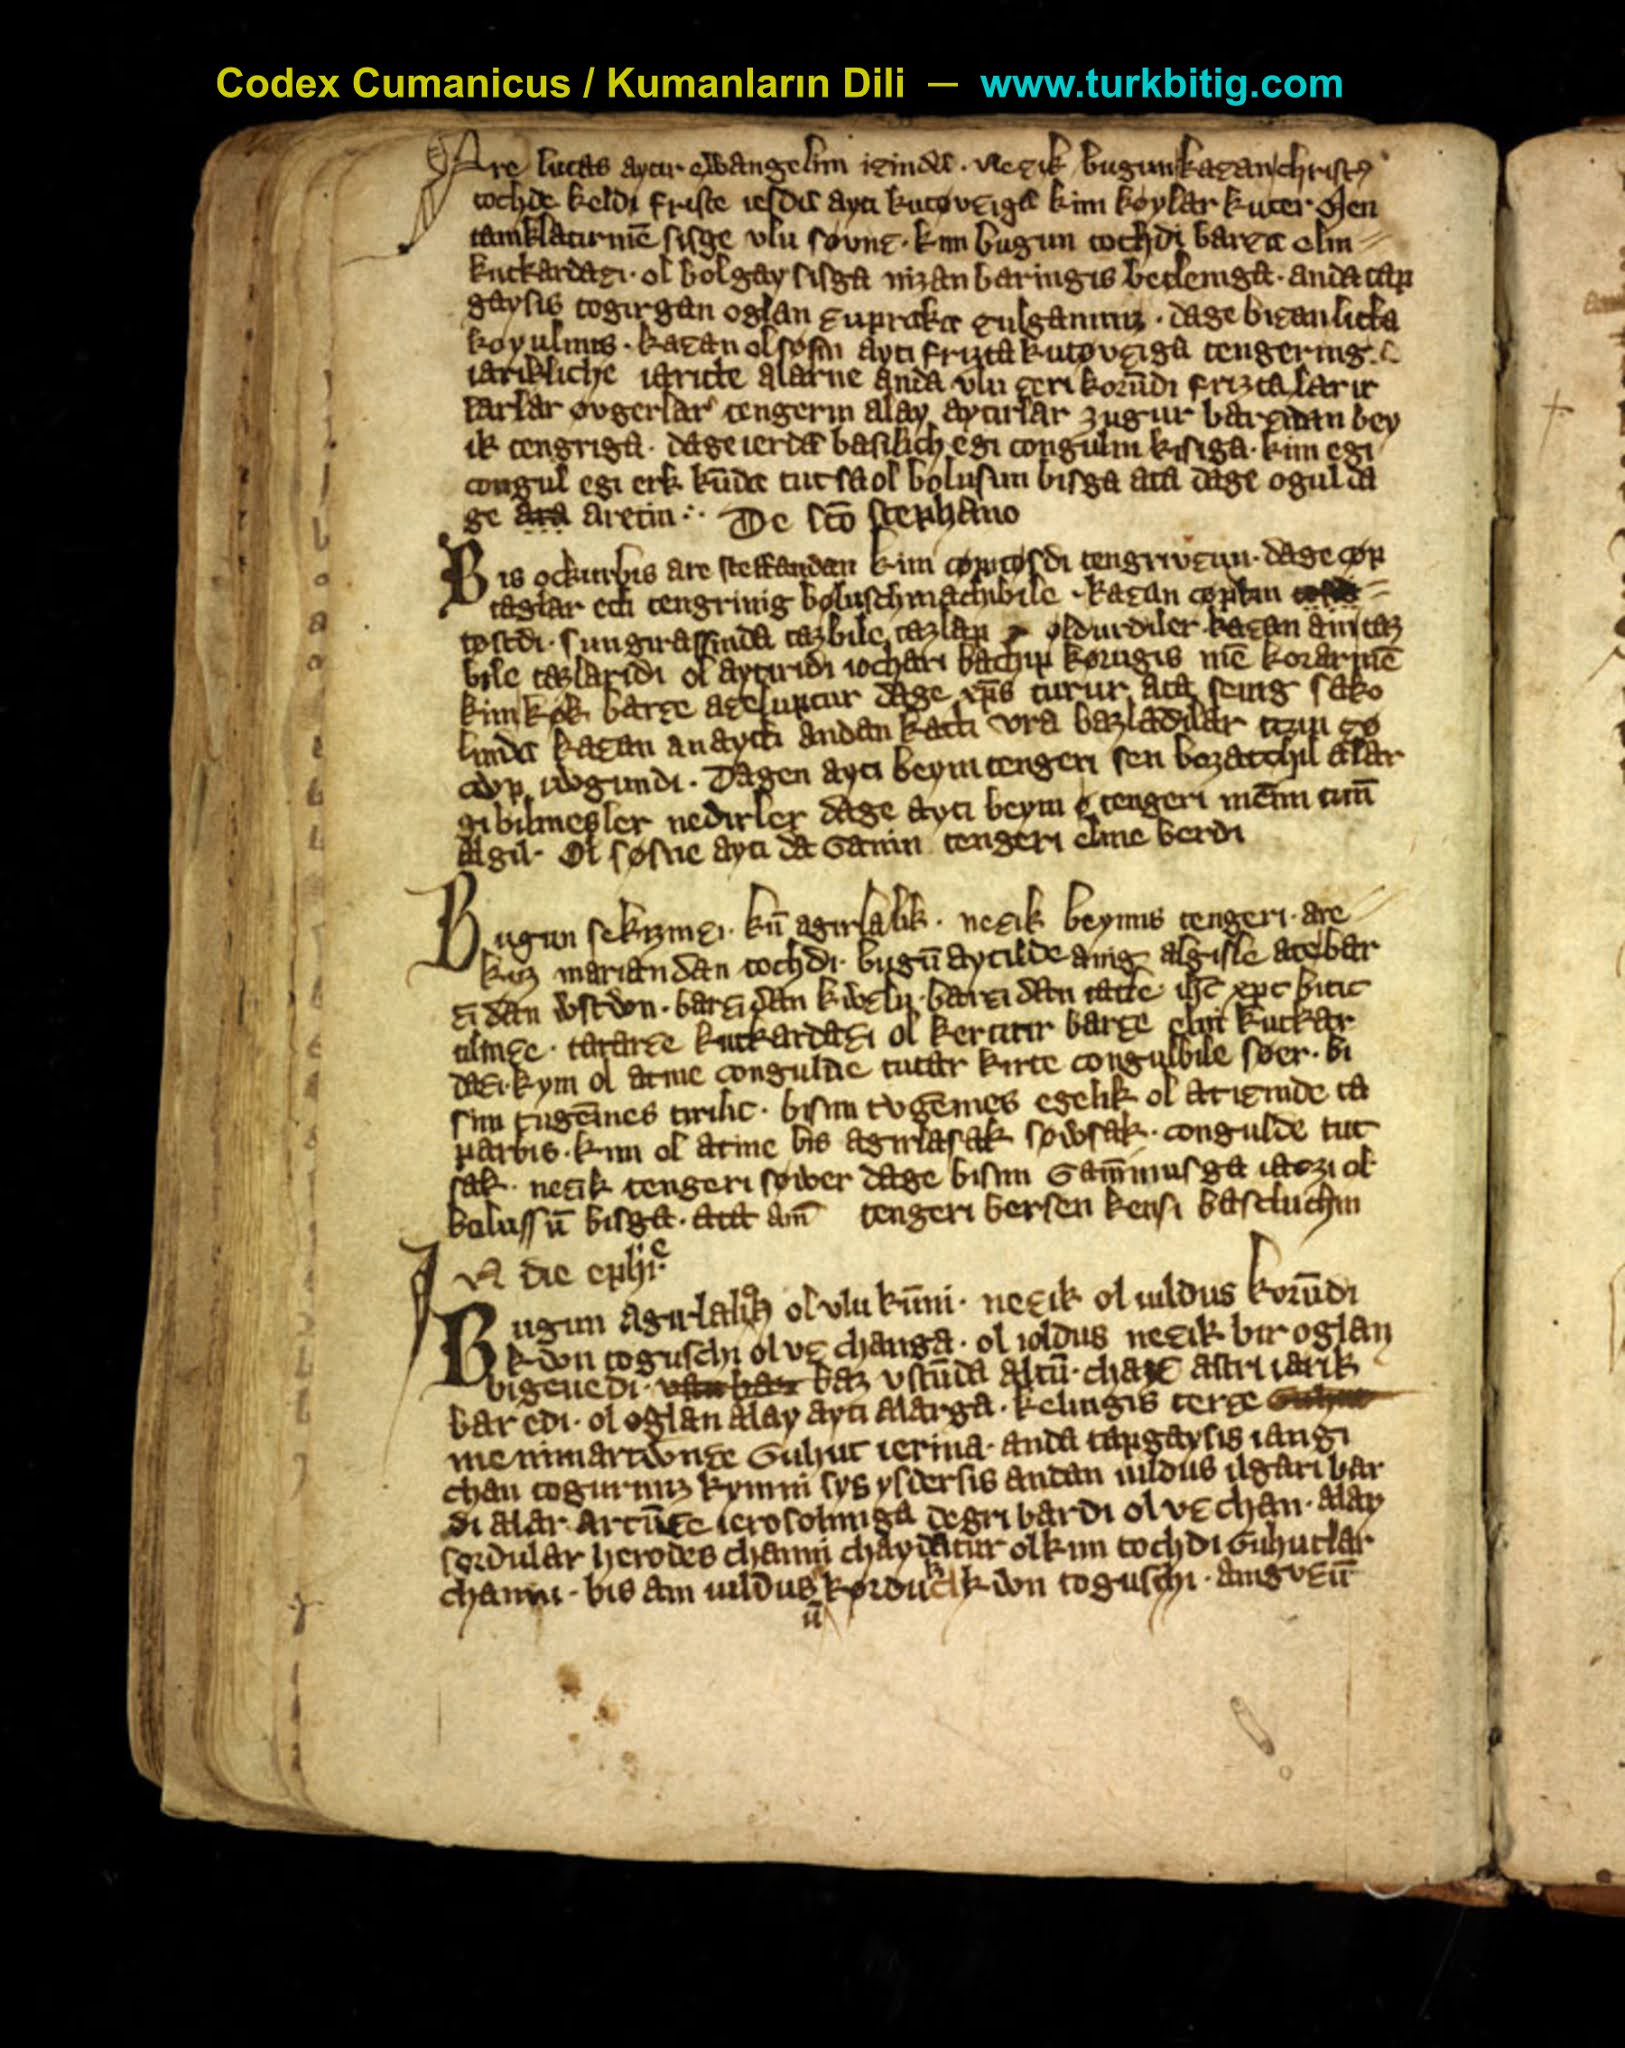 Codex Cumanicus / Kumanların Dili — www.turkbitig.com
Are lucas aytir ewangelim icinda. Necik bugun kacan christ9
tochde keldi friste iesdis ayti kutovciga kim koylar kuter Men
tamklatirmē sisge vlu sovnc. kim bugun tochdi barca elni
kutkardaci. ol bolgay sisga nizan baringis betlemga. anda tap
gaysis togirgan oglan cuprakca culganmiz. dage bicanlicka
koyulmis. kacan ol sosin ayti frizta kutovciga tengering
iarikliche iaricte alarne anda vlu ceri korūdi friztalar ir
larlar ovgerlar tengerin alay aytirlar zugur barcadan bey
ik tengriga. dage ierda basilich egi congulm kisiga. kim egi
congul egi erk kūda tutsa ol bolusun bisga ata dage ogul da
ge ara aretin. De sco stephano
Bis ockurbis are steffandan kim copcosdi tengrivcun. dage cop
taglar etti tengrinig boluschmachibile. kacan copbin
tostdi. sungirassinda tazbile tazlap oldurdiler kacan ani taz
bile tazlaridi ol aytiridi iochari bachip korugis mē korarmē
kim kok barce acesuptur dage xps turur ata sening sako
linda kacan an aytti andan katti vra bazladilar tizin co
cup iwgundi. Dagen ayti beym tengeri sen bozatchil alar
gi bilmesler nedirler dage ayti beym tengeri menim tinī
algil. Ol sosne ayti da Ganin tengeri eline berdi
Bugun sekizinci. kū agirlalik. necik beymis tengeri. are
kiz mariandan tochdi. bugū aytilde anig algisle ate bar
ci dan wstwn. barcidan kwclu. barcidan tatte ihc xpc bitic
tilince. tatarce kutkardaci ol kertirir barce elni kutkar
daci. kym ol atine congulde tutar kirte congulbile soer. bi
sim tugēmes tirilic. bisim tvgēmes egelik ol at icinde ta
parbis. kim ol atine bis agirlasak sowsak. congulde tut
sak. necik tengeri sower dage bisim Gammisga iaczi ol
bolussū bisga. ata am tengeri bersen kensi bastluchin
In die ephie
Bugun agirlalich ol vlu kūni. necik ol iuldus korūdi
kwn toguschi ol vc changa. ol ioldus necik bir oglan
bigenedi. baz vstūda altū. chac astri iarik
bar edi. ol oglan alay ayti alarga. kelingis terce
menim artwnce Guhut ierina. anda tapgaysis iangi
chan togurmiz kymni sys ysdersis andan iuldus ilgari bar
di alar artūce ierosolimga degri bardi ol vc chan. alay
sordular herodes channi chaydatur ol kim tochdi Guhutlar
channi. bis am iuldus korduc kwn toguschi. anig vcū
ū